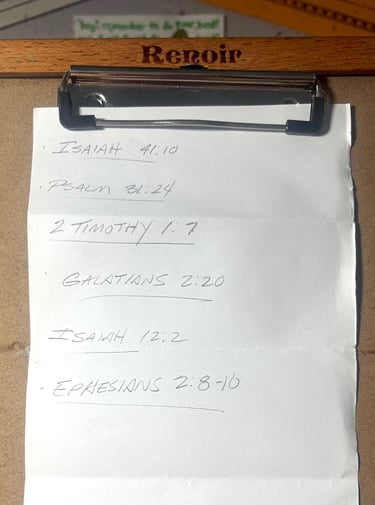 hey! remember to
Renoir
· ISAIAH 41:10
· PSALM 31:24
2 TIMOTHY 1:7
GALATIANS 2:20
ISAIAH 12:2
· EPHESIANS 2:8-10